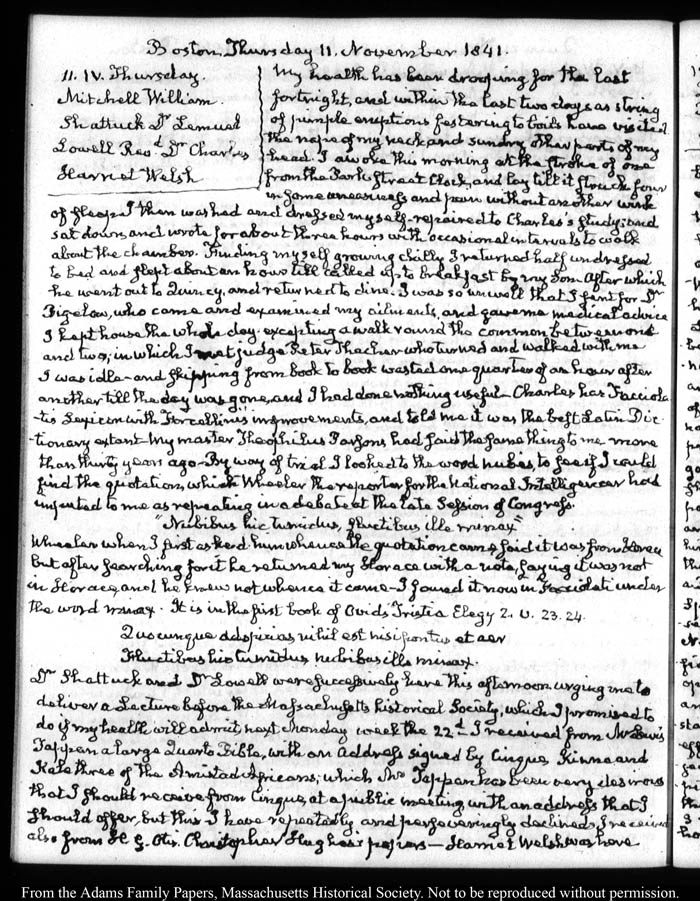 Boston Thursday 11. November 1841.
11. IV. Thursday.
Mitchell William.
Shattuck Dr. Lemuel
Lowell Revd. Dr Charles
Harriet Welsh
My health has been drooping for the last
fortnight, and within the last two days a string
of pimple eruptions festering to boils have visited
the nape of my neck and sundry other parts of my
head. I awoke this morning at the stroke of one
from the Park Street Clock, and lay till it struck four
in some uneasiness and pain without another wink
of sleep. I then washed and dressed myself, repaired to Charles's study; and
sat down and wrote for about three hours with occasional intervals to walk
about the chamber. Finding myself growing chilly I returned half undressed
to bed and slept about an hour till called up to breakfast by my Son. After which
he went out to Quincy, and returned to dine. I was so unwell that I sent for Dr
Bigelow, who came and examined my ailments, and gave me medical advice
I kept house the whole day. excepting a walk round the common between one
and two; in which I met judge Peter Thacher who turned and walked with me
I was idle—and skipping from book to book wasted one quarter of an hour after
another till the day was gone, and I had done nothing useful. Charles has Facciola
-tis Lexicon with Forcellini's improvements, and told me it was the best Latin Dic-
-tionary extant. My master Theophilus Parsons had said the same thing to me more
than thirty years ago—By way of trial I looked to the word nubes, to see if I could
find the quotation, which Wheeler the reporter for the National Intelligencer had
imputed to me as repeating in a debate at the late Session of Congress.
"Nubibus hic tumidus, fluctibus ille minax"
Wheeler when I first asked him whence the quotation came, said it was from Horace
but after searching for it he returned my Horace with a note, saying it was not
in Horace, and he knew not whence it came—I found it now in Facciolati under
the word minax. It is in the first book of Ovids Tristia Elegy 2. v. 23. 24.
Quocunque adspicias nihil est nisi pontus et aer
Fluctibus hic tumidus nubibus ille minax.
Dr Shattuck and Dr Lowell were successively here this afternoon urging me to
deliver a Lecture before the Massachusetts historical Society, which I promised to
do if my health will admit, next Monday week the 22d. I received from Mr Lewis
Tappan a large Quarto Bible, with an Address signed by Cinque, Kinna and
Kale three of the Amistad Africans; which Mr Tappan has been very desirous
that I should receive from Cinque, at a public meeting with an address that I
should offer, but this I have repeatedly and perseveringly declined. I received
also from H. G. Otis. Christopher Hughes's papers— Harriet Welsh was here
From the Adams Family Papers, Massachusetts Historical Society. Not to be reproduced without permission.